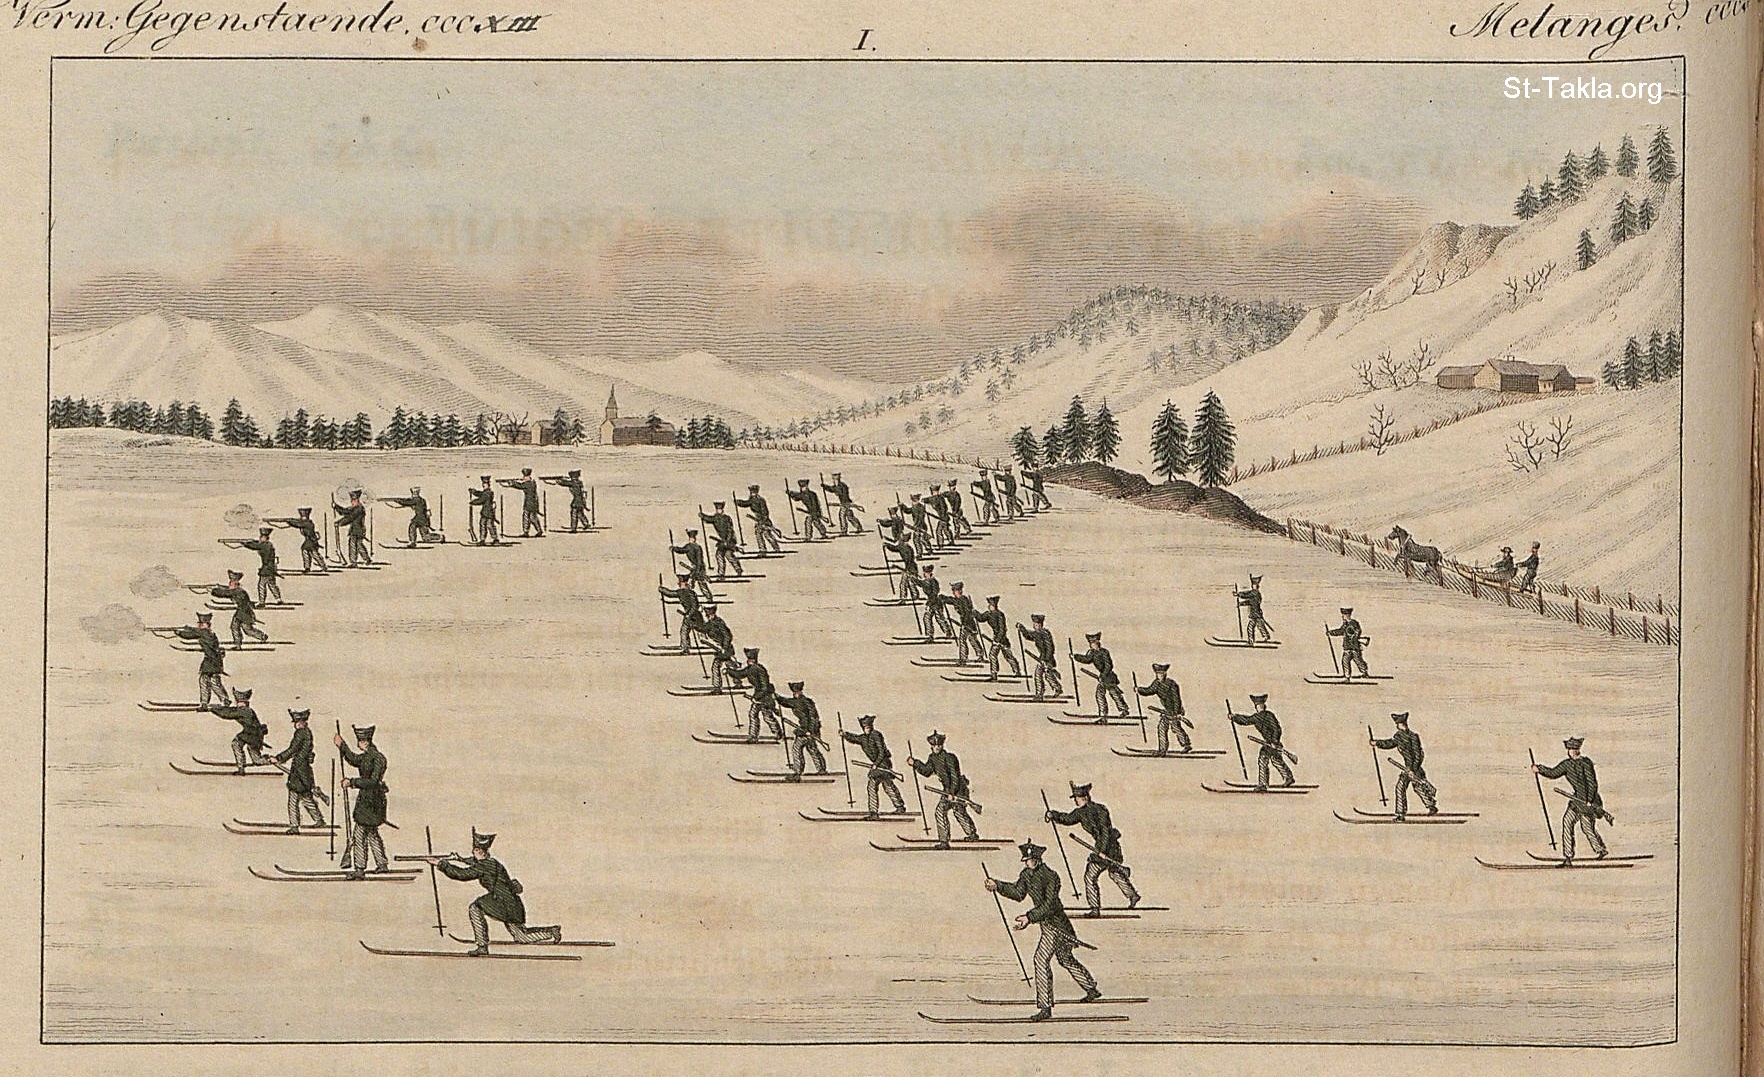 Verm: Gegenstaende. cccxiii
I.
Melanges.
St-Takla.org